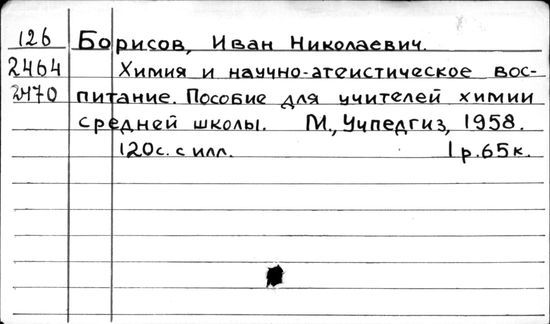 126 Борисов, Иван Николаевич.
2464 Химия и научно-атеистическое вос-
2470 питание. Пособие для учителей химии
средней школы. М., Учпедгиз, 1958.
120с. с илл. 1р.65к.